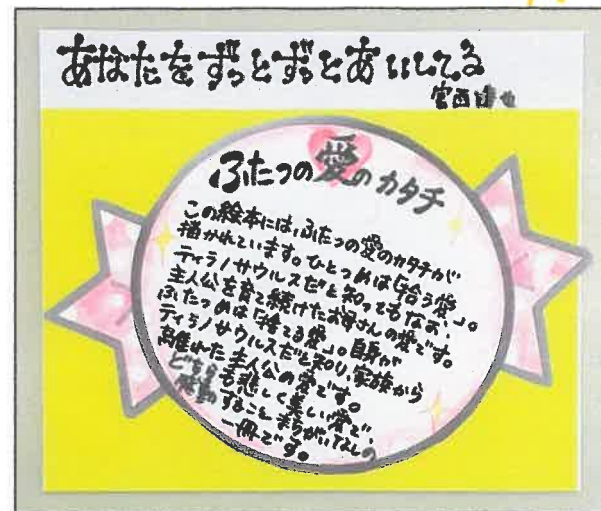 あなたをずっとずっとあいしてる
宮西達也
ふたつの愛のカタチ
この絵本には、ふたつの愛のカタチが
描かれています。ひとつめは「拾う愛」。
ティラノサウルスだと知ってもなお、
主人公を育て続けたお母さんの愛です。
ふたつめは「捨てる愛」。自身が
ティラノサウルスだと知り、家族から
離れた主人公の愛です。
どちらも悲しく美しい愛で、
感動することまちがいなしの
一冊です。